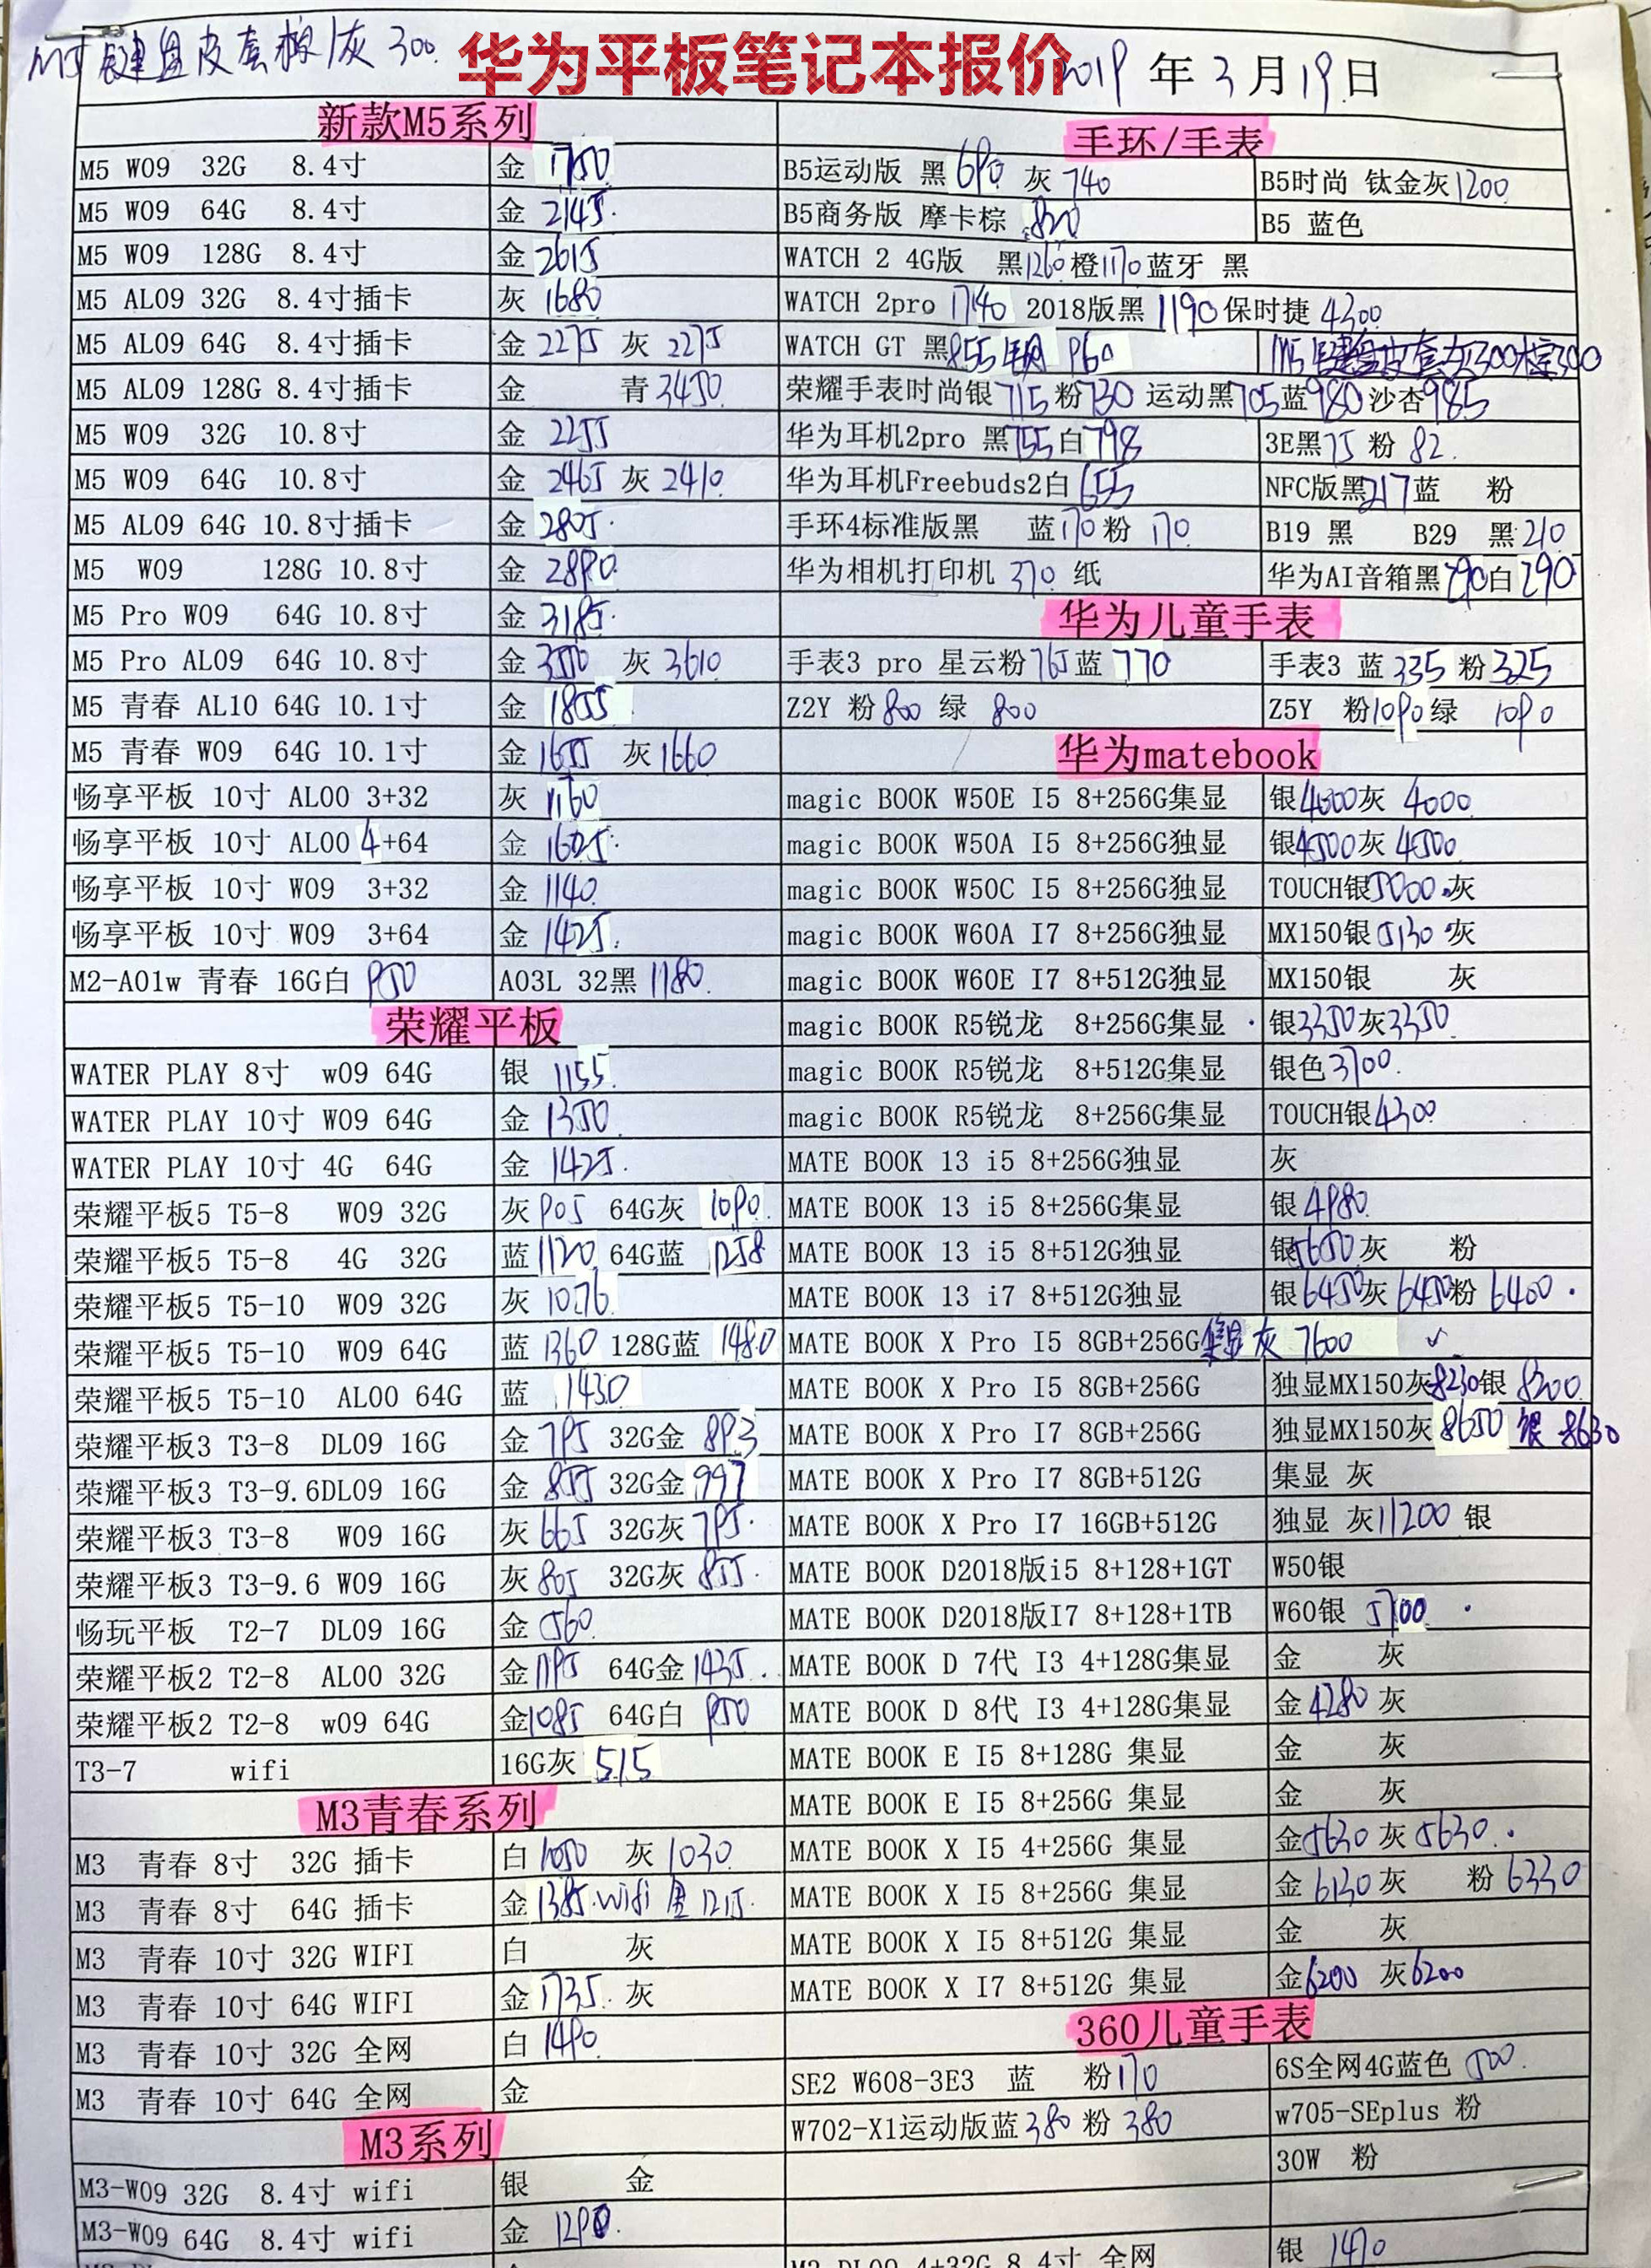 M5键盘皮套棕/灰 300.
华为平板笔记本报价
2019 年 3 月 19 日
新款M5系列
M5 W09 32G 8.4寸 金 1750
M5 W09 64G 8.4寸 金 2145.
M5 W09 128G 8.4寸 金 2615
M5 AL09 32G 8.4寸插卡 灰 1680
M5 AL09 64G 8.4寸插卡 金 2275 灰 2275
M5 AL09 128G 8.4寸插卡 金 青 3450
M5 W09 32G 10.8寸 金 2255
M5 W09 64G 10.8寸 金 2465 灰 2410
M5 AL09 64G 10.8寸插卡 金 2805.
M5 W09 128G 10.8寸 金 2890.
M5 Pro W09 64G 10.8寸 金 3185.
M5 Pro AL09 64G 10.8寸 金 3550 灰 3610
M5 青春 AL10 64G 10.1寸 金 1855
M5 青春 W09 64G 10.1寸 金 1655 灰 1660
畅享平板 10寸 AL00 3+32 灰 1160
畅享平板 10寸 AL00 4+64 金 1605.
畅享平板 10寸 W09 3+32 金 1140.
畅享平板 10寸 W09 3+64 金 1425.
M2-A01w 青春 16G白 950 A03L 32黑 1180.
荣耀平板
WATER PLAY 8寸 w09 64G 银 1155.
WATER PLAY 10寸 W09 64G 金 1350
WATER PLAY 10寸 4G 64G 金 1425.
荣耀平板5 T5-8 W09 32G 灰 905 64G灰 1090.
荣耀平板5 T5-8 4G 32G 蓝 1120 64G蓝 1258
荣耀平板5 T5-10 W09 32G 灰 1076.
荣耀平板5 T5-10 W09 64G 蓝 1360 128G蓝 1480
荣耀平板5 T5-10 AL00 64G 蓝 1430
荣耀平板3 T3-8 DL09 16G 金 795 32G金 893
荣耀平板3 T3-9.6DL09 16G 金 855 32G金 997
荣耀平板3 T3-8 W09 16G 灰 665 32G灰 795.
荣耀平板3 T3-9.6 W09 16G 灰 805 32G灰 855.
畅玩平板 T2-7 DL09 16G 金 560
荣耀平板2 T2-8 AL00 32G 金 1195 64G金 1435.
荣耀平板2 T2-8 w09 64G 金 1085 64G白 950
T3-7 wifi 16G灰 515
M3青春系列
M3 青春 8寸 32G 插卡 白 1050 灰 1030
M3 青春 8寸 64G 插卡 金 1385.wifi 金 1215.
M3 青春 10寸 32G WIFI 白 灰
M3 青春 10寸 64G WIFI 金 1735. 灰
M3 青春 10寸 32G 全网 白 1490.
M3 青春 10寸 64G 全网 金
M3系列
M3-W09 32G 8.4寸 wifi 银 金
M3-W09 64G 8.4寸 wifi 金 1290.
手环/手表
B5运动版 黑 690 灰 740 B5时尚 钛金灰 1200
B5商务版 摩卡棕 820 B5 蓝色
WATCH 2 4G版 黑 1260 橙 1170 蓝牙 黑
WATCH 2pro 1740 2018版黑 1190 保时捷 4300
WATCH GT 黑 855 银 960 M5键盘皮套灰300棕300
荣耀手表时尚银 715 粉 730 运动黑 705 蓝 980 沙杏 985
华为耳机2pro 黑 755 白 798 3E黑 75 粉 82.
华为耳机Freebuds2白 655 NFC版黑 217 蓝 粉
手环4标准版黑 蓝 170 粉 170 B19 黑 B29 黑 210
华为相机打印机 370 纸 华为AI音箱黑 290 白 290
华为儿童手表
手表3 pro 星云粉 765 蓝 770 手表3 蓝 335 粉 325
Z2Y 粉 800 绿 800 Z5Y 粉 1090 绿 1090
华为matebook
magic BOOK W50E I5 8+256G集显 银 4000 灰 4000
magic BOOK W50A I5 8+256G独显 银 4500 灰 4500
magic BOOK W50C I5 8+256G独显 TOUCH银 5000. 灰
magic BOOK W60A I7 8+256G独显 MX150银 5130 灰
magic BOOK W60E I7 8+512G独显 MX150银 灰
magic BOOK R5锐龙 8+256G集显 银 3350 灰 3350
magic BOOK R5锐龙 8+512G集显 银色 3700.
magic BOOK R5锐龙 8+256G集显 TOUCH银 4300
MATE BOOK 13 i5 8+256G独显 灰
MATE BOOK 13 i5 8+256G集显 银 4980
MATE BOOK 13 i5 8+512G独显 银 5650 灰 粉
MATE BOOK 13 i7 8+512G独显 银 6450 灰 6450 粉 6400.
MATE BOOK X Pro I5 8GB+256G 集显 灰 7600 ✓
MATE BOOK X Pro I5 8GB+256G 独显MX150灰 8230 银 8200
MATE BOOK X Pro I7 8GB+256G 独显MX150灰 8650 银 8630
MATE BOOK X Pro I7 8GB+512G 集显 灰
MATE BOOK X Pro I7 16GB+512G 独显 灰 11200 银
MATE BOOK D2018版i5 8+128+1GT W50银
MATE BOOK D2018版I7 8+128+1TB W60银 5700.
MATE BOOK D 7代 I3 4+128G集显 金 灰
MATE BOOK D 8代 I3 4+128G集显 金 4280 灰
MATE BOOK E I5 8+128G 集显 金 灰
MATE BOOK E I5 8+256G 集显 金 灰
MATE BOOK X I5 4+256G 集显 金 5630 灰 5630.
MATE BOOK X I5 8+256G 集显 金 6130 灰 粉 6330
MATE BOOK X I5 8+512G 集显 金 灰
MATE BOOK X I7 8+512G 集显 金 6200 灰 6200
360儿童手表
SE2 W608-3E3 蓝 粉 170 6S全网4G蓝色 500.
W702-X1运动版蓝 380 粉 380 w705-SEplus 粉
30W 粉
M3-DL09 4+32G 8.4寸 全网 银 1470